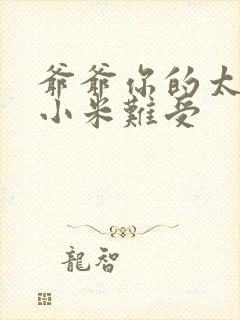 爺爺你的太
小米難受
龍智